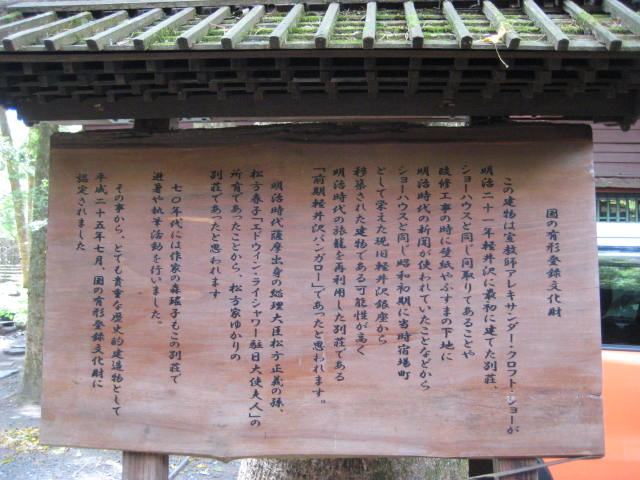 国の有形登録文化財
この建物は宣教師アレキサンダー・クロフト・ショーが
明治二十一年軽井沢に最初に建てた別荘、
ショーハウスと同じ間取りであることや
改修工事の時に壁紙やふすまの下地に
明治時代の新聞が使われていたことなどから
ショーハウスと同じ昭和初期に当時宿場町
として栄えた現旧軽井沢銀座から
移築された建物である可能性が高く
明治時代の旅籠を再利用した別荘である
「前期軽井沢バンガロー」であったと思われます。
明治時代薩摩出身の総理大臣松方正義の孫、
松方春子「エドウィン・ライシャワー駐日大使夫人」の
所有であったことから、松方家ゆかりの
別荘であったと思われます
七〇年代には作家の森瑤子もこの別荘で
避暑や執筆活動を行いました。
その事から、とても貴重な歴史的建造物として
平成二十五年七月、国の有形登録文化財に
認定されました